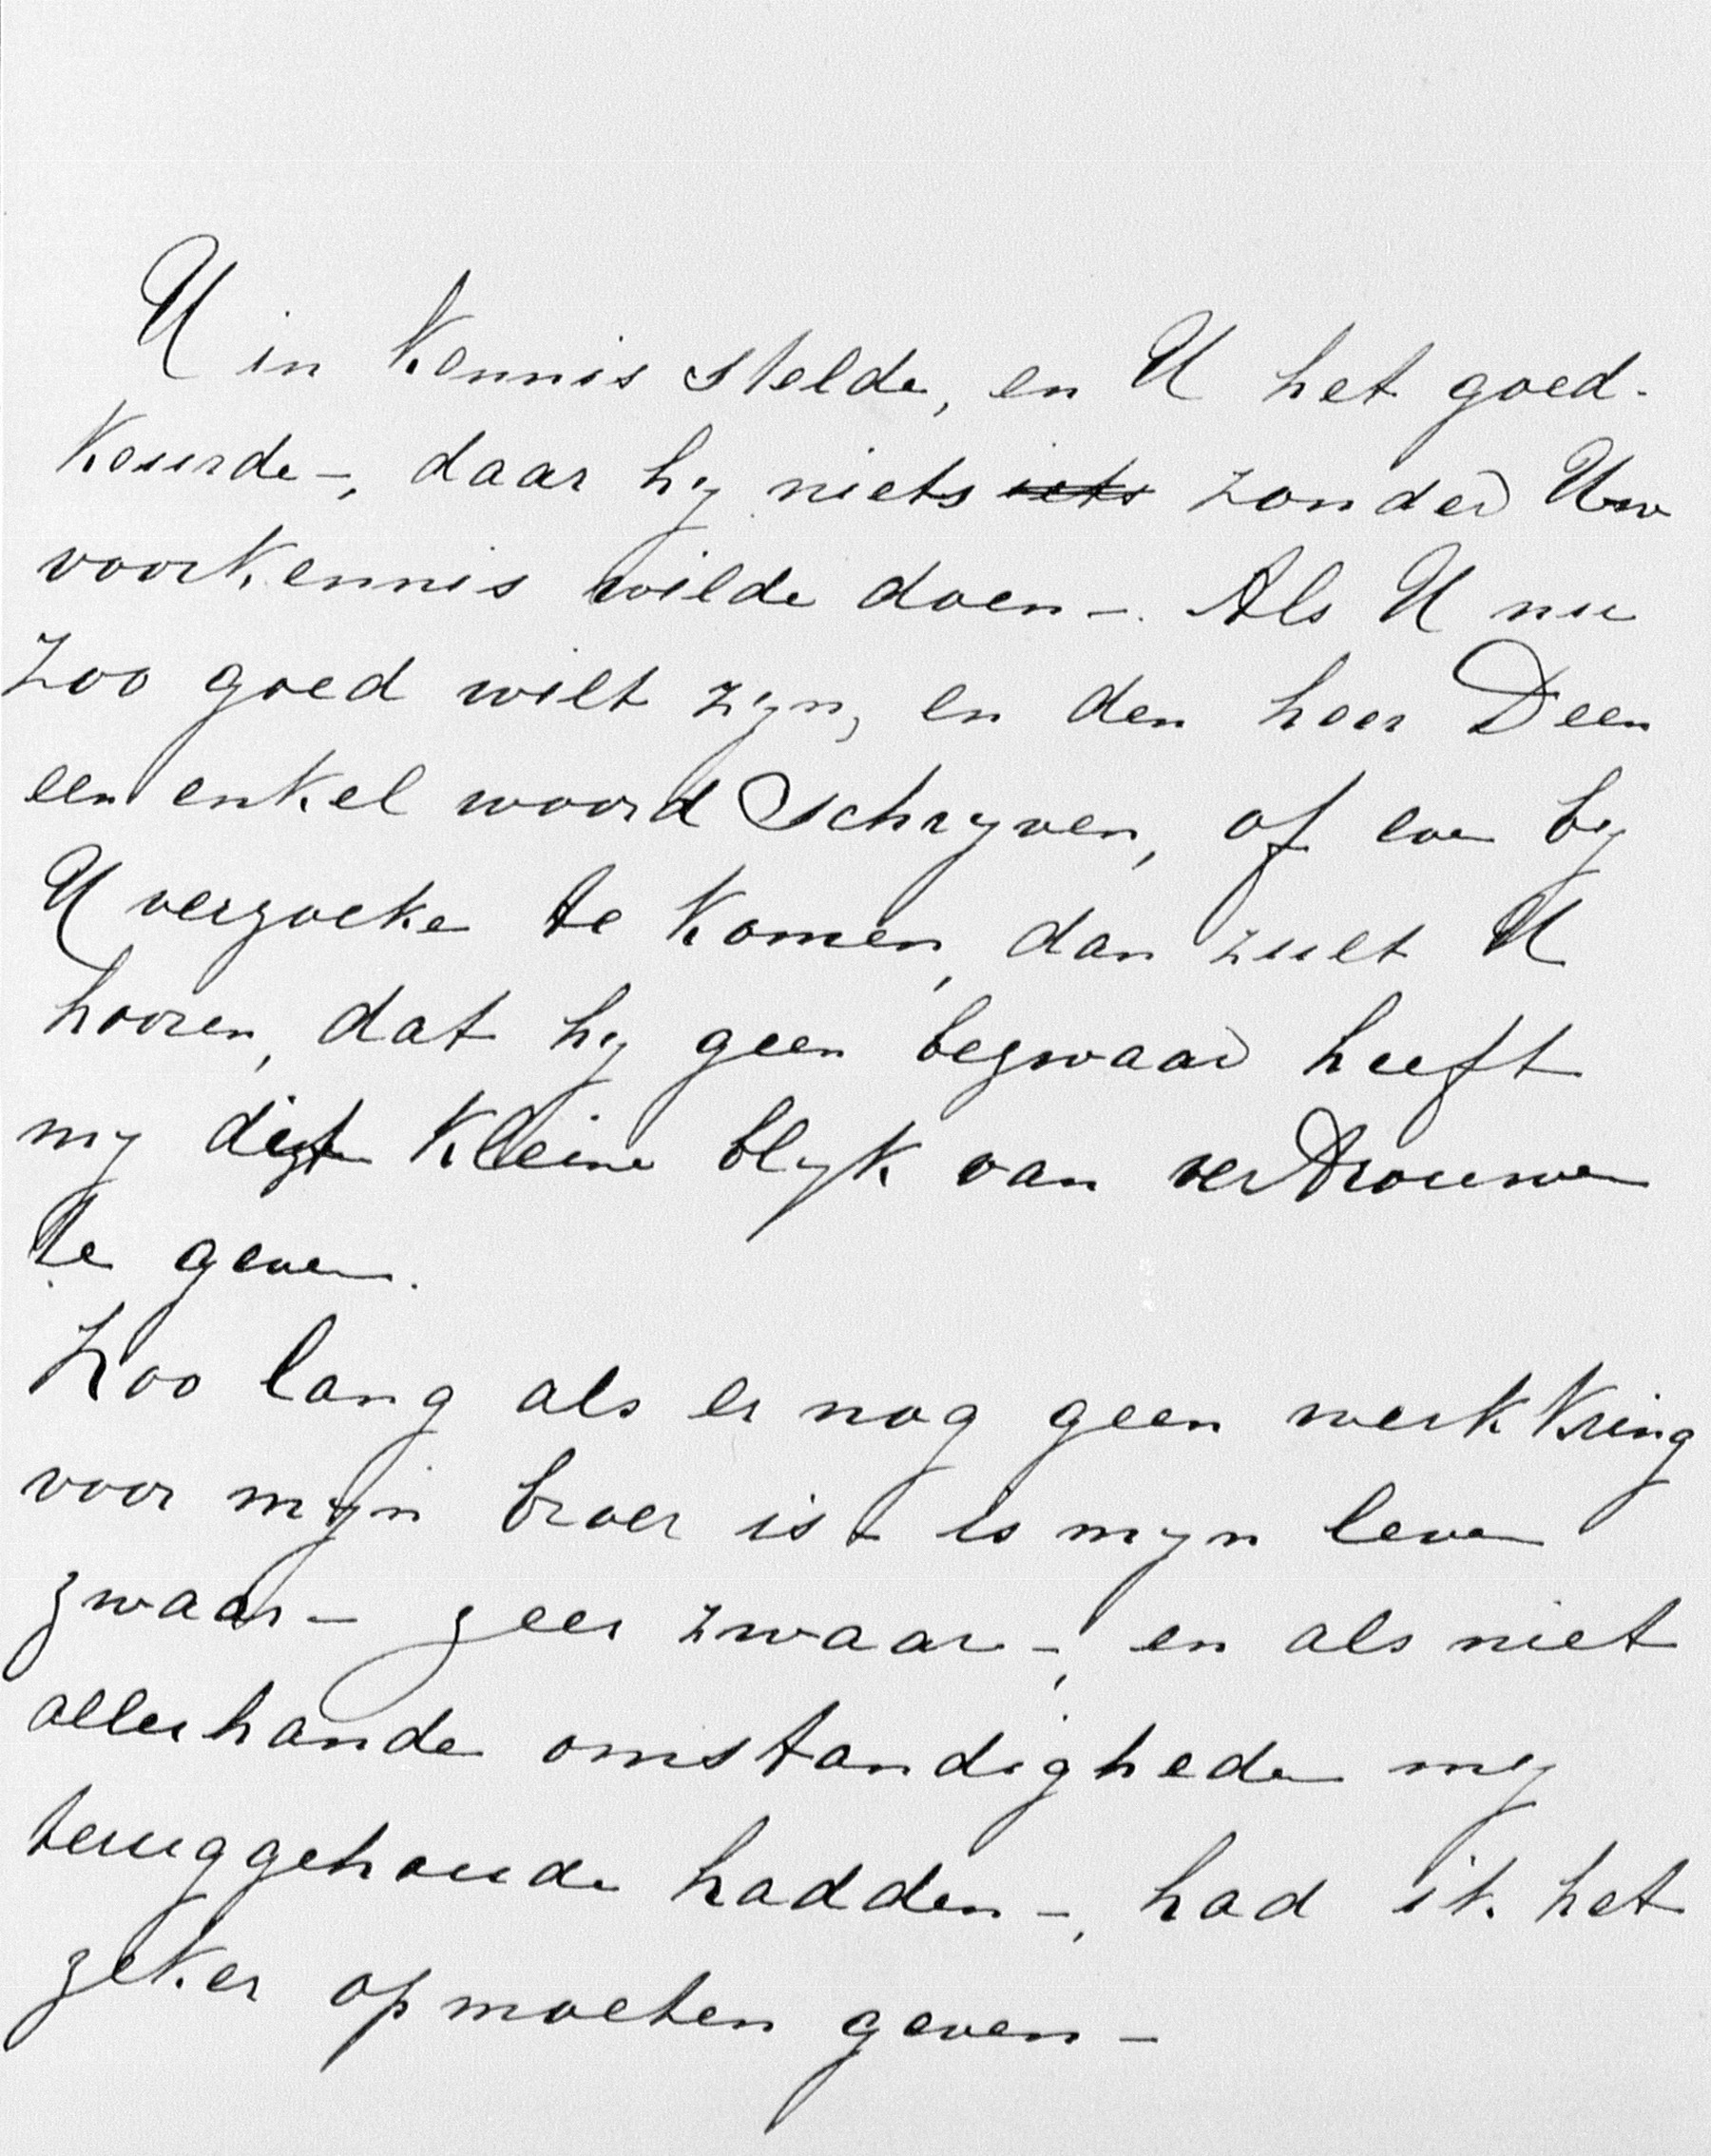 U in kennis stelde, en U het goed-
keurde –, daar hy niets iets zonder Uw
voorkennis wilde doen –. Als U nu
zoo goed wilt zyn, en den heer Deen
een enkel woord schryven, of even by
U verzoeke te komen, dan zult U
hooren, dat hy geen bezwaar heeft
my dit kleine blyk van vertrouwen
te geven.
Zoo lang als er nog geen werkkring
voor myn broer is – is myn leven
zwaar – zeer zwaar –, en als niet
allerhande omstandigheden my
teruggehouden hadden –, had ik het
zeker op moeten geven –